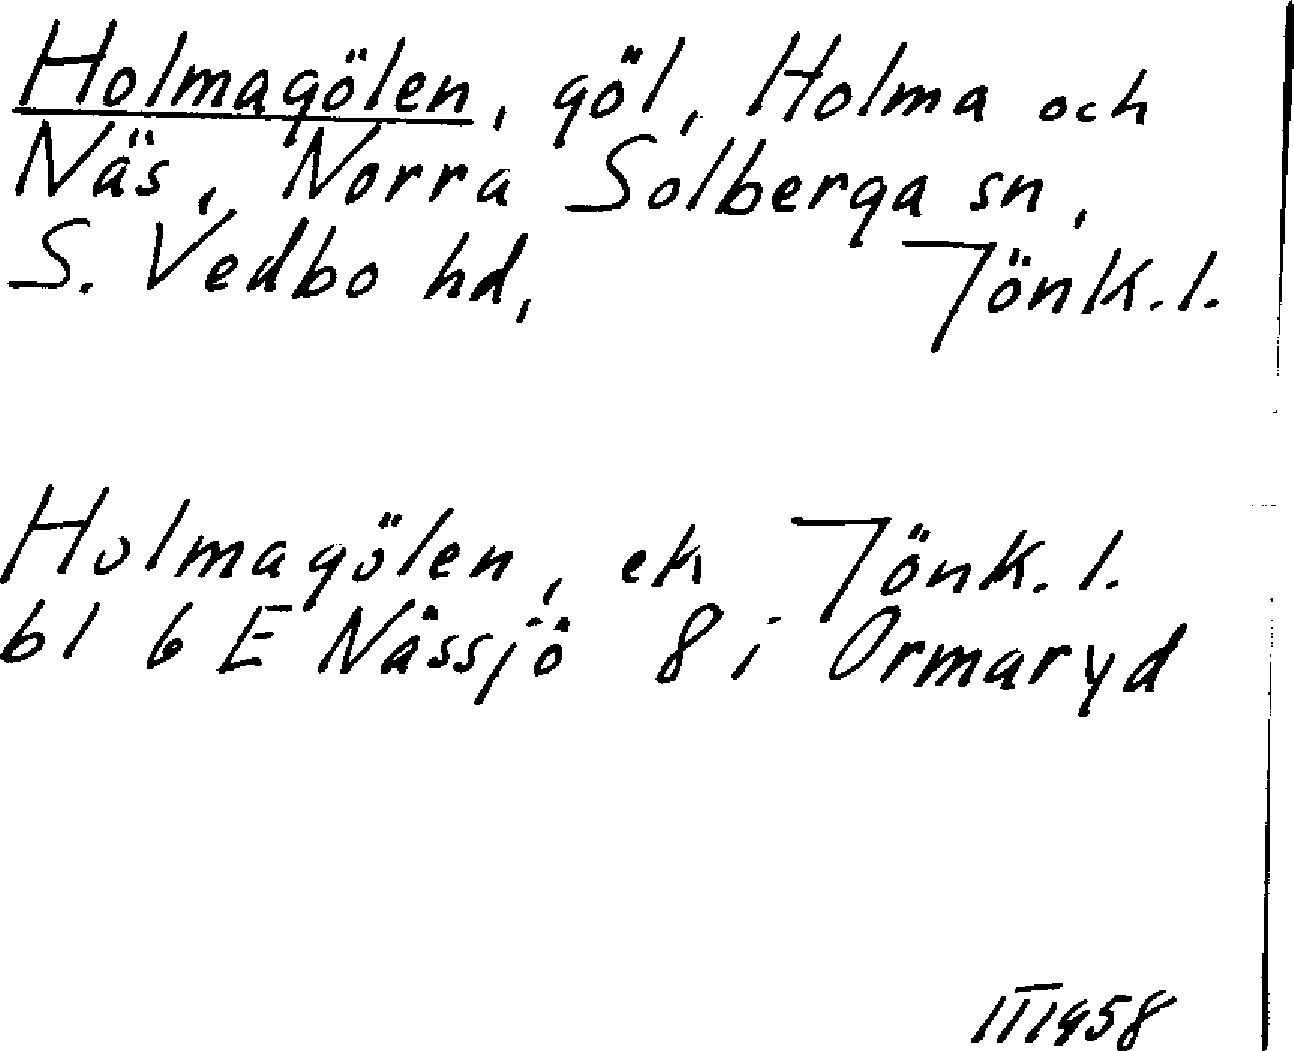 Holmagölen, göl, Holma och
Näs, Norra Solberga sn,
S. Vedbo hd, Jönk.l.
Holmagölen, ek Jönk.l.
bl 6 E Nässjö 8 i Ormaryd
1958